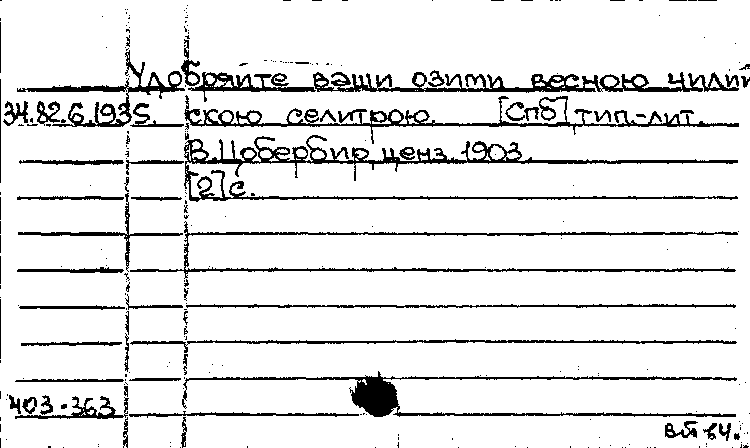 Удобряйте ваши озими весною чилий
34.82.6.1935. скою селитрою. [Спб] тип.-лит.
В. Цобербир, ценз. 1903.
[2] с.
403-363